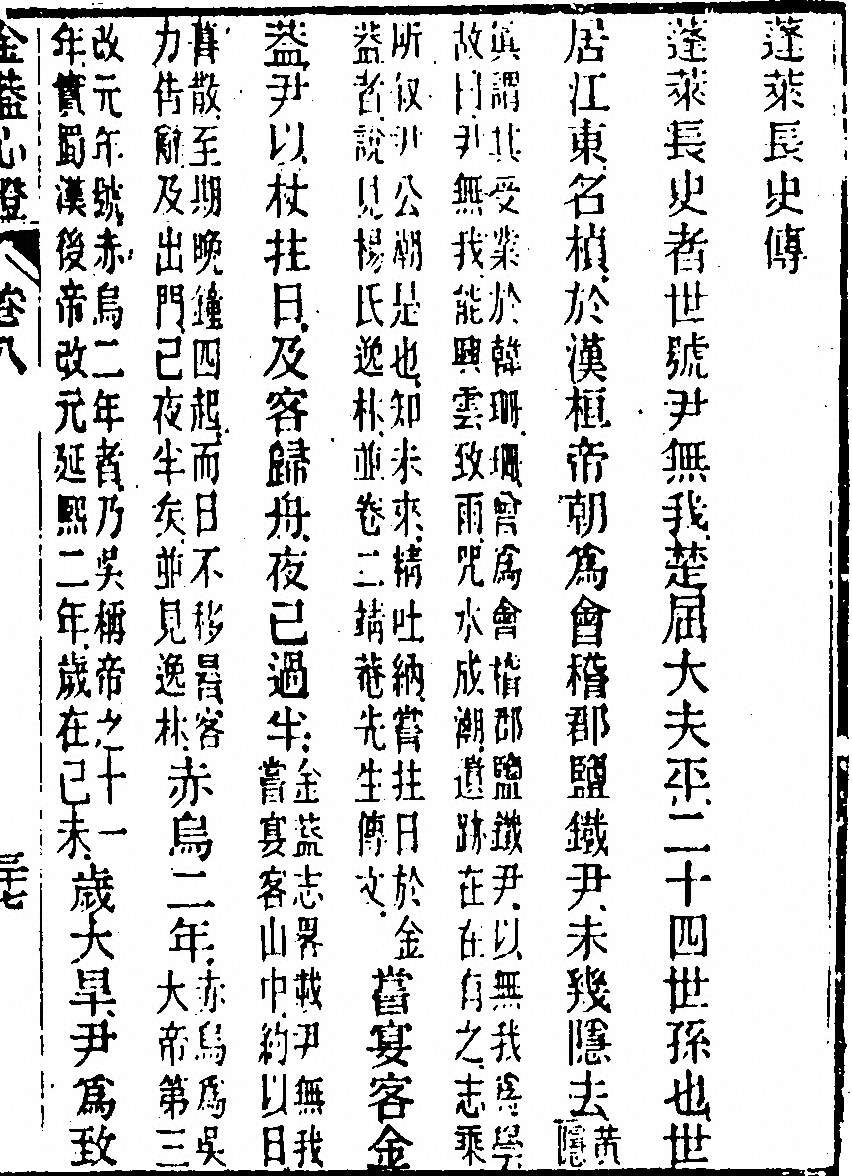 蓬萊長史傳
蓬萊長史者世號尹無我楚屈大夫平二十四世孫也世
居江東名楨於漢桓帝朝爲會稽郡鹽鐵尹未幾隱去
黃
隱
眞謂其受業於韓珊珊曾爲會稽郡鹽鐵尹以無我爲學
故曰尹無我能興雲致雨咒水成潮遺跡在在有之志乘
所收尹公潮是也知未來精吐納嘗拄日於金
葢者說見楊氏逸林並卷二靖菴先生傳文
嘗宴客金
葢尹以杖拄日及客歸舟夜已過半
金葢志畧載尹無我
嘗宴客山中約以日
暮散至期晚鐘四起而日不移晷客
力告辭及出門已夜半矣並見逸林
赤烏二年
赤烏爲吳
大帝第三
改元年號赤烏二年者乃吳稱帝之十一
年實蜀漢後帝改元延熙二年歲在己未
歲大旱尹爲致
金葢心燈 卷八 三十七